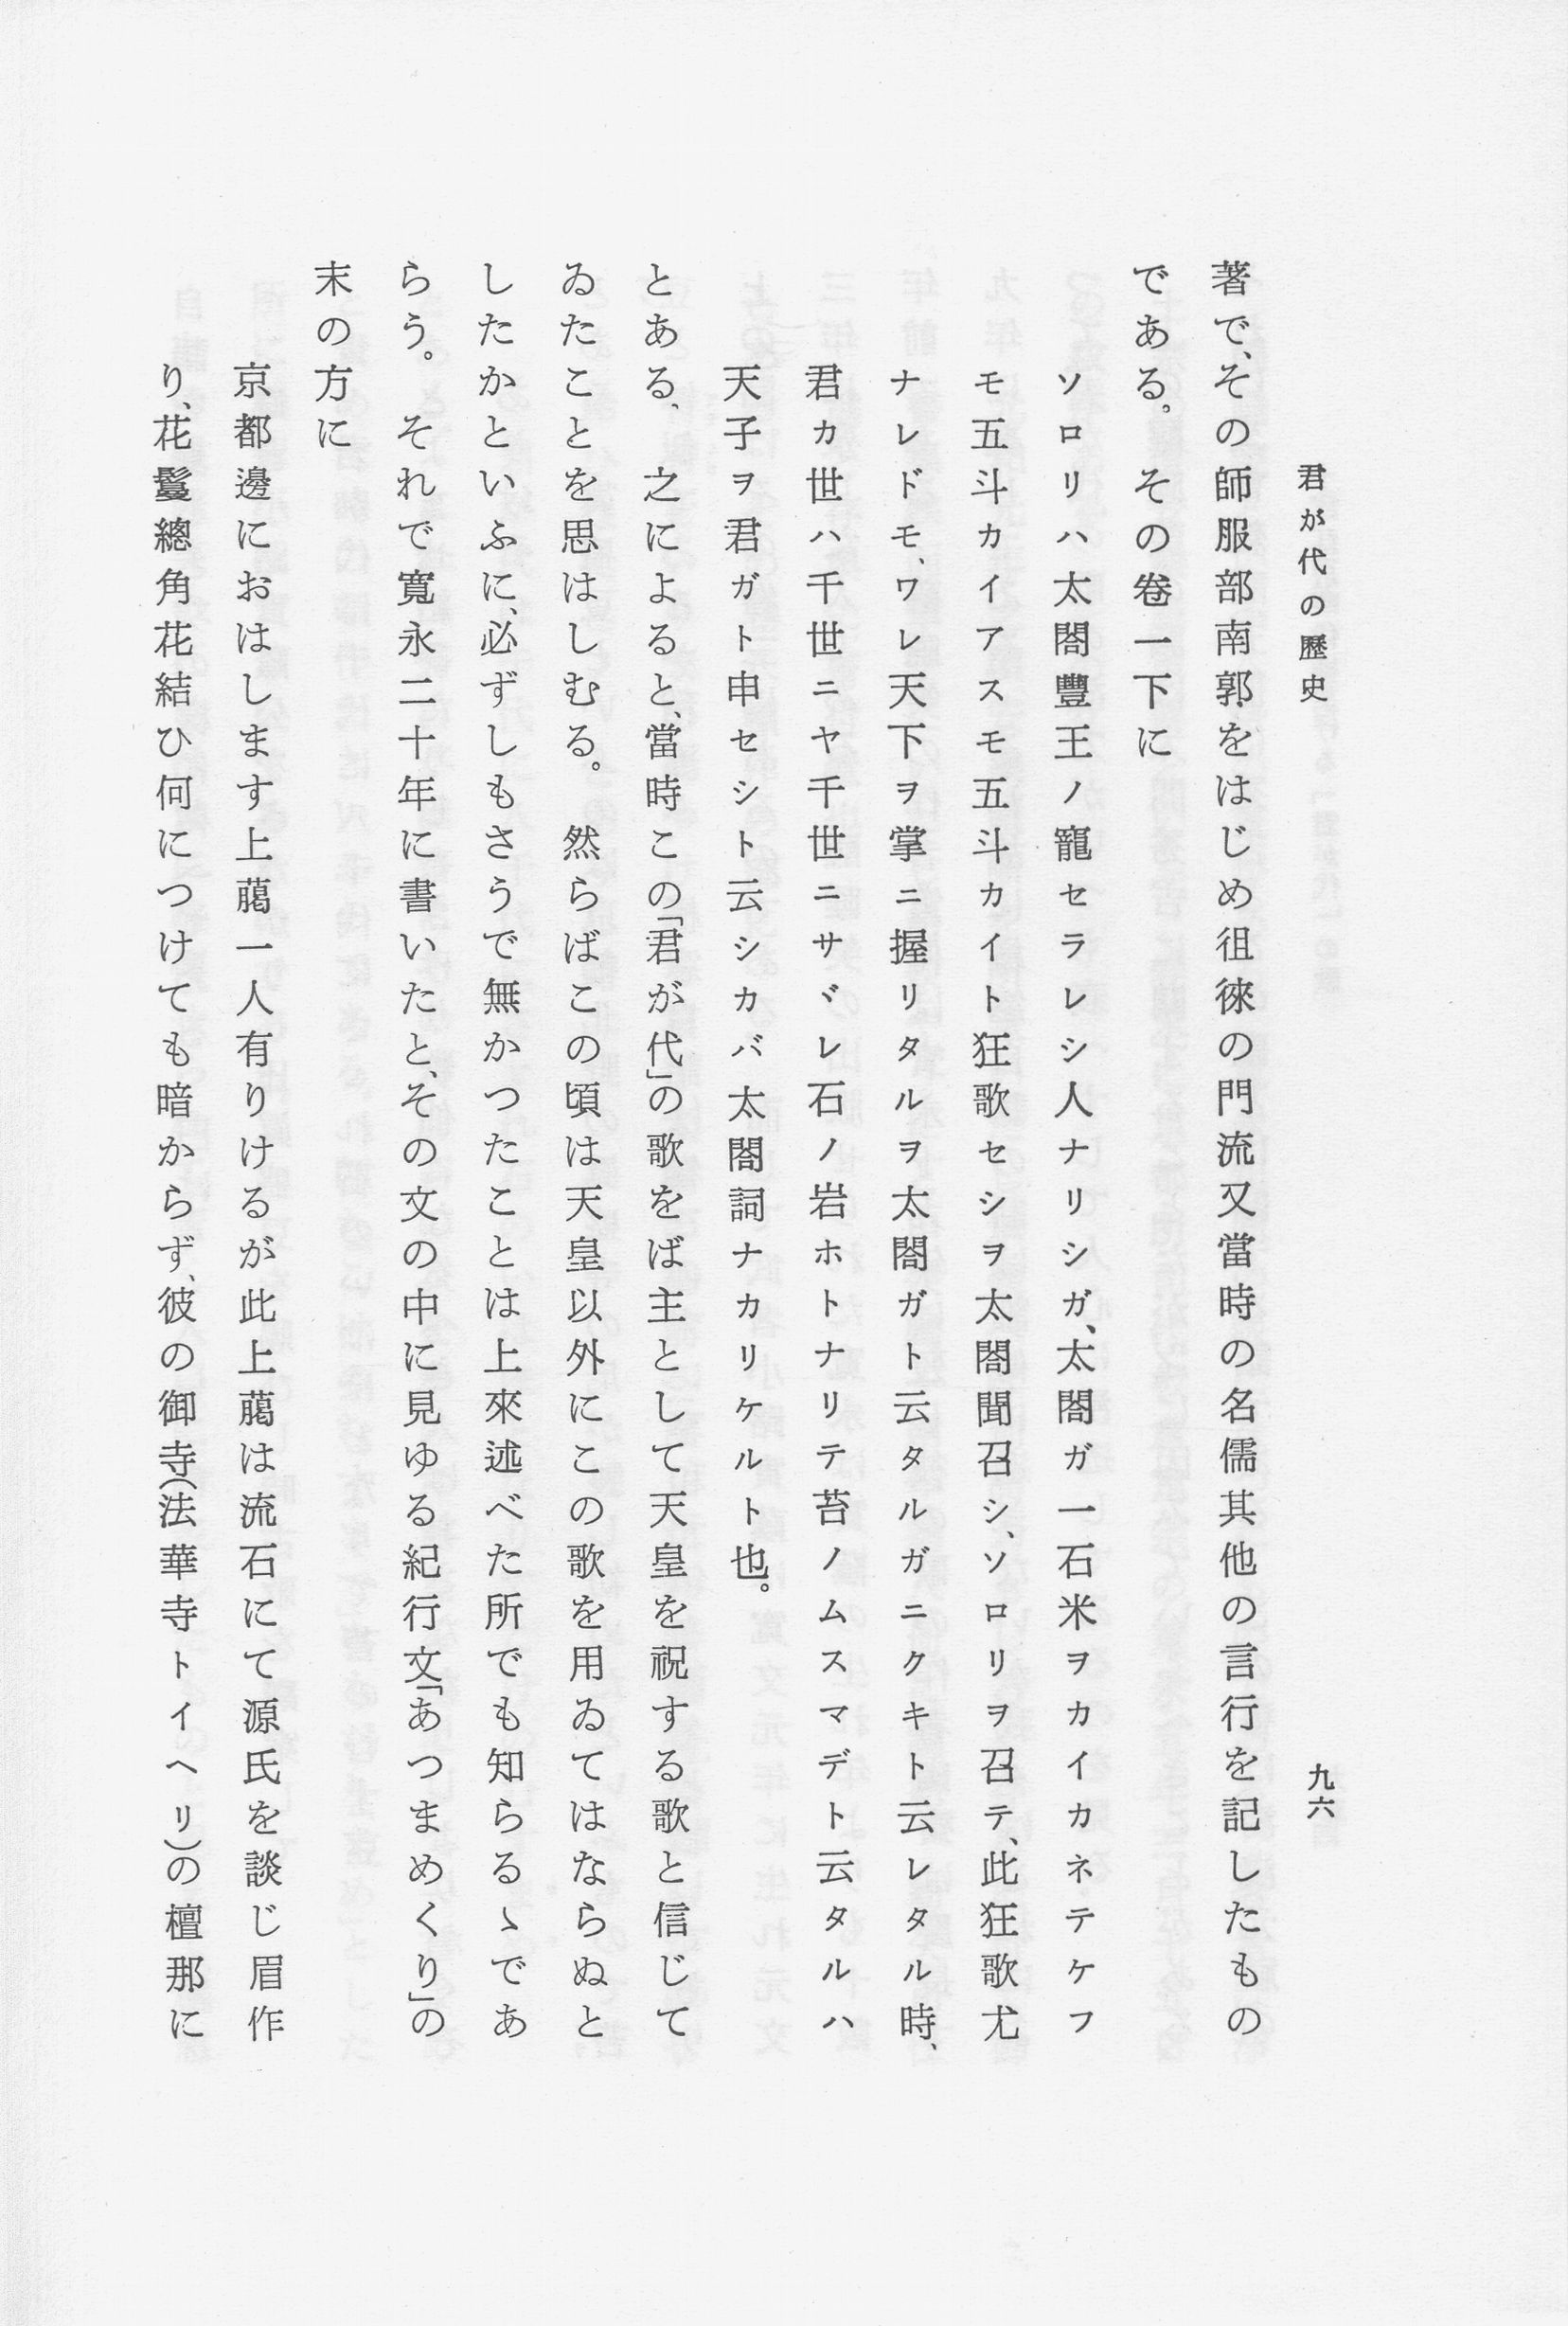 君が代の歴史
九六
著で、その師服部南郭をはじめ徂徠の門流又當時の名儒其他の言行を記したもの
である。その卷一下に
ソロリハ太閤豐王ノ寵セラレシ人ナリシガ、太閤ガ一石米ヲカイカネテケフ
モ五斗カイアスモ五斗カイト狂歌セシヲ太閤聞召シ、ソロリヲ召テ、此狂歌尤
ナレドモ、ワレ天下ヲ掌ニ握リタルヲ太閤ガト云タルガニクキト云レタル時、
君カ世ハ千世ニヤ千世ニサヾレ石ノ岩ホトナリテ苔ノムスマデト云タルハ
天子ヲ君ガト申セシト云シカバ太閤詞ナカリケルト也。
とある、之によると、當時この「君が代」の歌をば主として天皇を祝する歌と信じて
ゐたことを思はしむる。然らばこの頃は天皇以外にこの歌を用ゐてはならぬと
したかといふに、必ずしもさうで無かつたことは上來述べた所でも知らるゝであ
らう。それで寬永二十年に書いたと、その文の中に見ゆる紀行文「あつまめくり」の
末の方に
京都邊におはします上﨟一人有りけるが此上﨟は流石にて源氏を談じ眉作
り、花鬘總角花結ひ何につけても暗からず、彼の御寺(法華寺トイヘリ)の檀那に